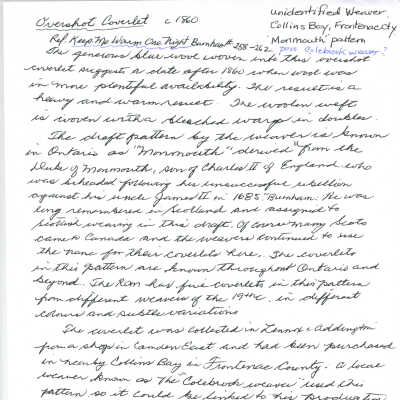 Overshot Coverlet c 1860
unidentified Weaver
Collins Bay, Frontenac cty
"Monmouth" pattern
poss Colebrook weaver?
Ref. Keep Me Warm One Night Burnham # 258-262
The generous blue wool woven into this overshot
coverlet suggests a date after 1860 when wool was
in more plentiful availability. The result is a
heavy and warm result. The woolen weft
is woven with a bleached warp in doubles.
The draft pattern by the weaver is known
in Ontario as "Monmouth" derived from the
Duke of Monmouth, son of Charles II of England who
was beheaded following his unsuccessful rebellion
against his uncle James II in 1685 Burnham. He was
long remembered in Scotland and assigned to
Scottish weaving in this draft. Of course many Scots
came to Canada and the weavers continued to use
the name for their coverlets here. The coverlets
in this pattern are known throughout Ontario and
beyond. The Rom has five coverlets in this pattern
from different weavers of the 19th c. in different
colours and subtle variations
The coverlet was collected in Lennox & Addington
from a shop in Camden East and had been purchased
in nearby Collins Bay in Frontenac County. A local
weaver known as the "Colebrook weaver" used this
pattern so it could be linked to his production